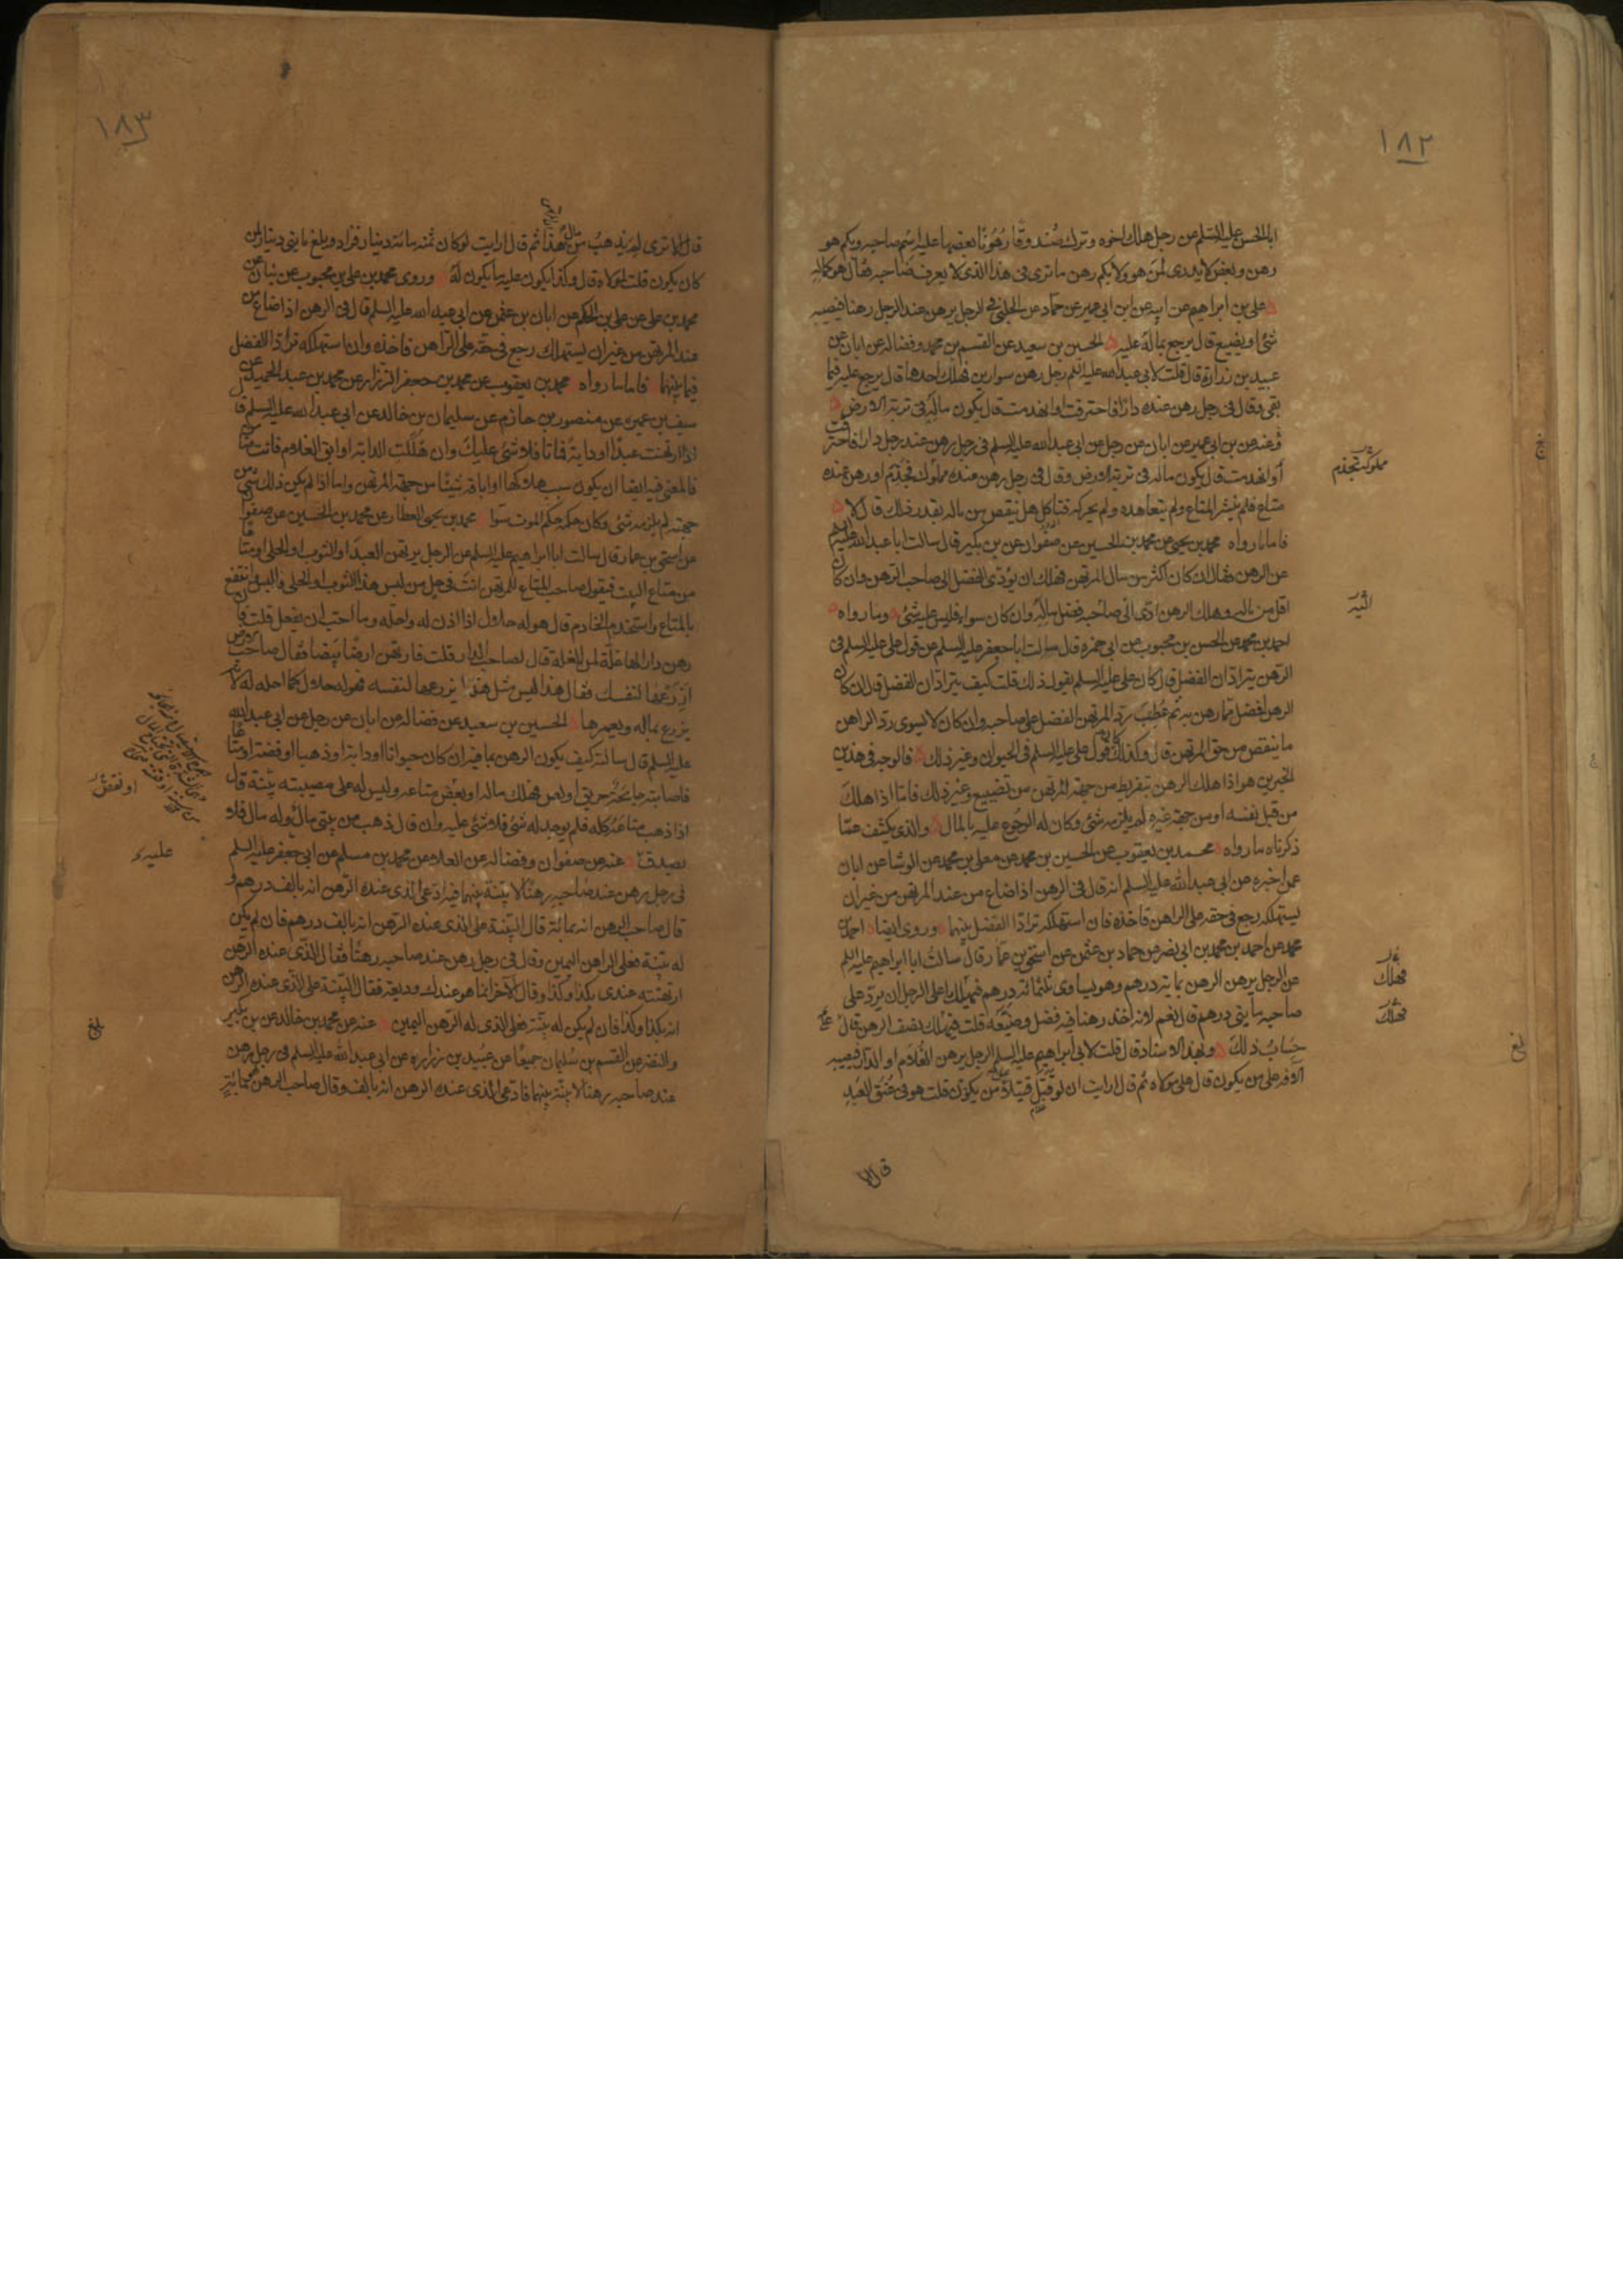 ١٨٢
ابا الحسن عليه السلم عن رجل هلك اخوه وترك صندوقا رهونا بعضها عليه اسم صاحبه وبكم هو
رهن وبعض لا يدرى لمن هو ولا بكم رهن ما ترى فى هذا الذى لا يعرف صاحبه فقال هو كماله
على بن ابراهيم عن ابيه عن ابن ابى عمير عن حماد عن الحلبى فى الرجل يرهن عند الرجل رهنا فيصيبه
شئ او يضيع قال يرجع بماله عليه الحسين بن سعيد عن القسم بن محمد وفضاله عن ابان عن
عبيد بن زرارة قال قلت لابى عبد الله عليه السلم رجل رهن سوارين فهلك احدهما قال يرجع عليه فيما
بقى وقال فى رجل رهن عنده دارا فاحترقت او انهدمت قال يكون ماله فى تربة الارض
وعنه عن بن ابى عمير عن ابان عن رجل عن ابى عبد الله عليه السلم فى رجل رهن عند رجل دارا فاحترقت
أو انهدمت قال يكون ماله فى تربة الارض وقال فى رجل رهن عنده مملوك فجذم او رهن عنده
متاع فلم ينشر المتاع ولم يتعاهده ولم يحركه فتاكل هل ينقص من ماله بقدر ذلك قال لا
فاما ما رواه محمد بن يحيى عن محمد بن الحسين عن صفوان عن بن بكير قال سالت ابا عبد الله عليه السلم
عن الرهن فقال ان كان اكثر من مال المرتهن فهلك ان يؤدى الفضل الى صاحب الرهن وان كان
اقل من ماله وهلك الرهن ادى الى صاحبه فضل ماله وان كان سواء فليس عليه شئ وما رواه
احمد بن محمد عن الحسن بن محبوب عن ابى حمزه قال سالت ابا جعفر عليه السلم عن قول على عليه السلم فى
الرهن يترادان الفضل قال كان على عليه السلم يقول ذلك قلت كيف يترادان الفضل قال ان كان
الرهن افضل مما رهن به ثم عطب رد المرتهن الفضل على صاحبه وان كان لا يسوى رد الراهن
ما ينقص من حق المرتهن قال وكذلك كان قول على عليه السلم فى الحيوان وغير ذلك فالوجه فى هذين
الخبرين هو اذا هلك الرهن بتفريط من جهة المرتهن من تضييع وغير ذلك فاما اذا هلك
من قبل نفسه او من جهة غيره لم يلزمه شئ وكان له الرجوع عليه بالمال والذى يكشف عما
ذكرناه ما رواه محمد بن يعقوب عن الحسين بن محمد عن معلى بن محمد عن الوشا عن ابان
عمن اخبره عن ابى عبد الله عليه السلم انه قال فى الرهن اذا ضاع من عند المرتهن من غير ان
يستهلكه رجع فى حقه على الراهن فاخذه فان استهلكه ترادا الفضل بينهما وروى ايضا احمد بن
محمد عن احمد بن محمد بن ابى نصر عن حماد بن عثمن عن اسحق بن عمار قال سالت ابا ابراهيم عليه السلم
عن الرجل يرهن الرهن بماية درهم وهو يساوى ثلثمائة درهم فيهلك اعلى الرجل ان يرد على
صاحبه مايتى درهم قال نعم لانه اخذ رهنا فيه فضل وضيعه قلت فيهلك نصف الرهن قال على
حساب ذلك وبهذا الاسناد قال قلت لابى ابراهيم عليه السلم الرجل يرهن الغلام او الدار فيصيبه
الآفه على من يكون قال على مولاه ثم قال ارايت ان لو قتل قتيلا على من يكون قلت هو فى عنق العبد
قال الا
مملوكه تجذم
اليه
فهلك
فهلك
بلغ
١٨٣
قال الا ترى لم يذهب من مال هذا ثم قال ارايت لو كان ثمنه مائة دينار فزاد وبلغ مايتى دينار لمن
كان يكون قلت لمولاه قال وكذا يكون عليه ما يكون له وروى محمد بن على بن محبوب عن بنان عن
محمد بن على عن على بن الحكم عن ابان بن عثمن عن ابى عبد الله عليه السلم قال فى الرهن اذا ضاع من
عند المرتهن من غير ان يستهلك رجع فى حقه على الراهن فاخذه وان استهلكه ترادا الفضل
فيما بينهما فاما ما رواه محمد بن يعقوب عن محمد بن جعفر الرزاز عن محمد بن عبد الحميد عن
سيف بن عميره عن منصور بن حازم عن سليمان بن خالد عن ابى عبد الله عليه السلم قال
اذا ارتهنت عبدا او داية فماتا فلا شئ عليك وان هلكت الدابة او ابق الغلام فانت ضامن
فالمعنى فيه ايضا ان يكون سبب هلاكها او اباقه شيئا من جهة المرتهن واما اذا لم يكن ذلك شئ من
جهته لم يلزمه شئ وكان حكمه حكم الموت سوا محمد بن يحيى العطار عن محمد بن الحسين عن صفوان
عن اسحق بن عمار قال سالت ابا ابراهيم عليه السلم عن الرجل يرتهن العبد او الثوب او الحلى او متاعا
من متاع البيت فيقول صاحب المتاع للمرتهن انت فى حل من لبس هذا الثوب او الحلى فالبس وانتفع
بالمتاع واستخدم الخادم قال هو له حلال اذا اذن له واحله وما احب ان يفعل قلت فان
رهن دارا لها غلة لمن الغلة قال لصاحب الدار قلت فارتهن ارضا بيضا فقال صاحب الارض
ازرعها لنفسك فقال هذا ليس مثل هذا يزرعها لنفسه فهو له حلال كما احله له لانه
يزرع بماله ويعمرها الحسين بن سعيد عن فضاله عن ابان عن رجل عن ابى عبد الله
عليه السلم قال سالته كيف يكون الرهن بما فيه ان كان حيوانا او دابة او ذهبا او فضة او متاعا
فاصابته جايحة حريق او لص فهلك ماله او بعض متاعه وليس له على مصيبته بينة قال
اذا ذهب متاعه كله فلم يوجد له شئ فلا شئ عليه وان قال ذهب من بيتى مالى وله مال فلا
يصدق عنه عن صفوان وفضاله عن العلا عن محمد بن مسلم عن ابى جعفر عليه السلم
فى رجل يرهن عند صاحبه رهنا لا بينة بينهما فيه ادعى الذى عنده الرهن انه بالف درهم و
قال صاحب الرهن انه بمائة قال البينة على الذى عنده الرهن انه بالف درهم فان لم يكن
له بينة فعلى الراهن اليمين وقال فى رجل رهن عند صاحبه رهنا فقال الذى عنده الرهن
ارتهنته عندى بكذا وكذا وقال الآخر انما هو عندك وديعة فقال البينة على الذى عنده الرهن
انه بكذا وكذا فان لم يكن له بينة فعلى الذى له الرهن اليمين عنه عن محمد بن خالد عن بن بكير
والنضر عن القسم بن سليمان جميعا عن عبيد بن زراره عن ابى عبد الله عليه السلم فى رجل رهن
عند صاحبه رهنا لا بينة بينهما فادعى الذى عنده الرهن انه بالف وقال صاحب الرهن هو بمائة
او نقص
عليه
بلغ